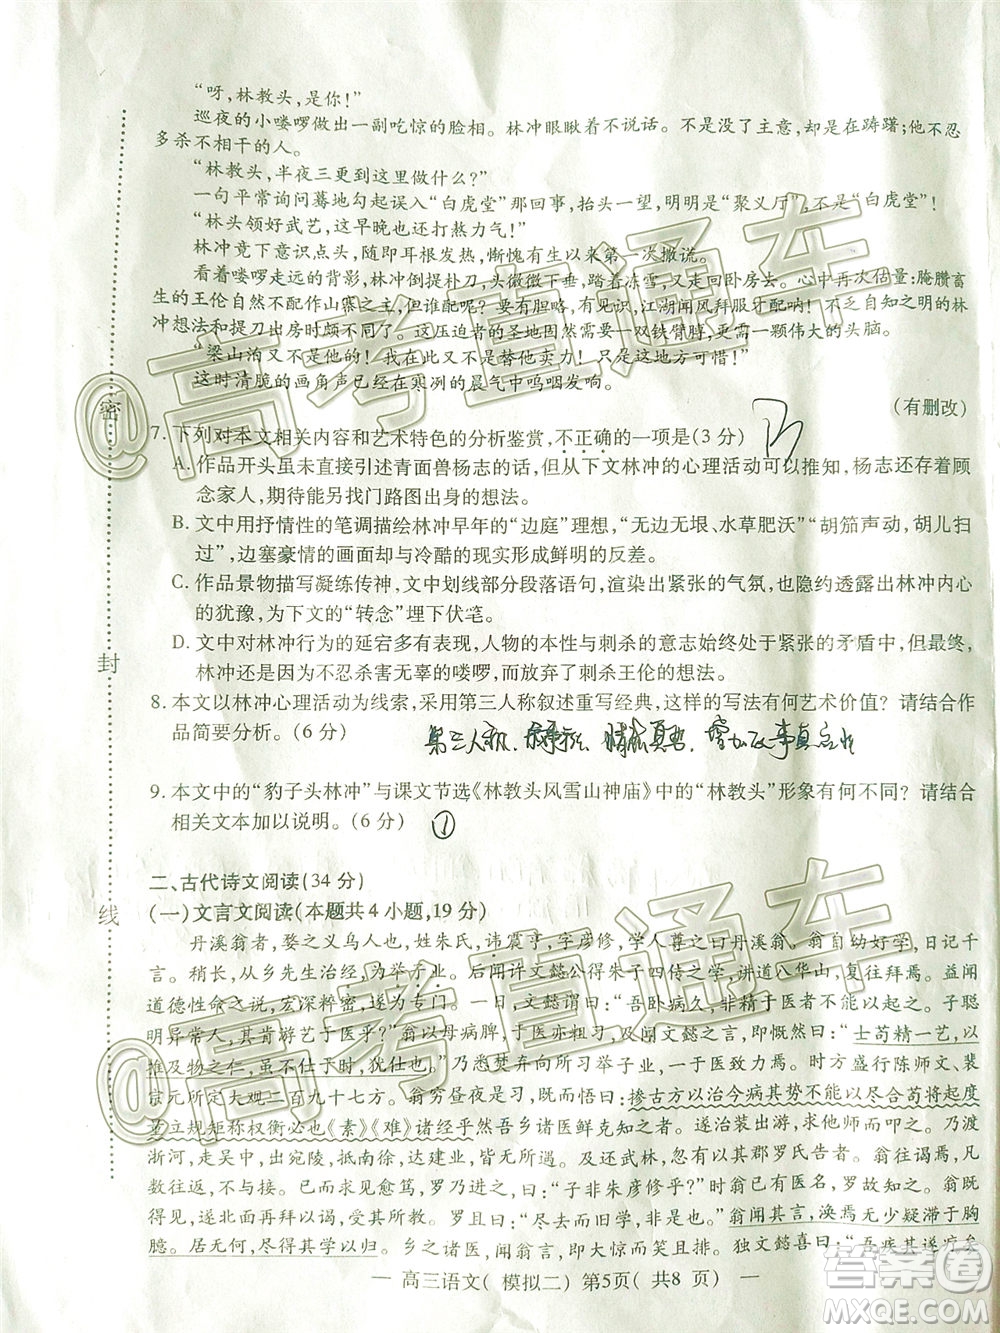 “呀,林教头,是你!”
巡夜的小喽啰做出一副吃惊的脸相。林冲眼瞅着不说话。不是没了主意,却是在踌躇;他不忍
多杀不相干的人。
“林教头,半夜三更到这里做什么?”
一句平常询问蓦地勾起误入“白虎堂”那回事,抬头一望,明明是“聚义厅”,不是“白虎堂”!
“林头领好武艺,这早晚也还打熬力气!”
林冲竟下意识点头,随即耳根发热,惭愧有生以来第一次撒谎。
看着喽啰走远的背影,林冲倒提朴刀,头微微下垂,踏着冻雪,又走回卧房去。心中再次估量:腌臜畜
生的王伦自然不配作山寨之主,但谁配呢?要有胆略,有见识,江湖闻风拜服才配哟!不乏自知之明的林
冲想法和提刀出房时颇不同了。这压迫者的圣地固然需一双铁臂膊,更需一颗伟大的头脑。
“梁山泊又不是他的!也不是替他卖力!只是这地方可惜!”
这时清脆的画角声已经在寒冽的晨气中呜咽发响。
(有删改)
7. 下列对本文相关内容和艺术特色的分析鉴赏,不正确的一项是(3 分)
A. 作品开头虽未直接引述青面兽杨志的话,但从下文林冲的心理活动可以推知,杨志还顾
念家人,期冀有机会寻找门路图个出身的想法。
B. 文中用抒情性的笔调描绘林冲早年的“边庭”理想,“无边无垠、水草肥沃”“胡笳声动,胡儿扫
过”,边塞豪情的画面却与冷酷的现实形成鲜明的反差。
C. 作品景物描写凝练传神,文中划线部分段落语句,渲染出紧张的气氛,也隐约透露出林冲内心
的犹豫,为下文的“转念”埋下伏笔。
D. 文中对林冲行为的延宕多有表现,人物的本性与刺杀的意志始终处于紧张的矛盾中,但最终,
林冲还是因为不忍杀害无辜的喽啰,而放弃了刺杀王伦的想法。
8. 本文以林冲心理活动为线索,采用第三人称叙述重写经典,这样的写法有何艺术价值?请结合作
品简要分析。(6 分)
第三人称,
9. 本文中的“豹子头林冲”与课文节选《林教头风雪山神庙》中的“林教头”形象有何不同?请结合
相关文本加以说明。(6 分) ①
二、古代诗文阅读(34 分)
(一)文言文阅读(本题共 4 小题,19 分)
丹溪翁者,婺之义乌人也,姓朱氏,讳震亨,字彦修,学人尊之曰丹溪翁。翁自幼好学,日记千
言。稍长,从乡先生治经,为举子业。后闻许文懿公得朱子四传之学,讲道八华山,复往拜焉。益闻
道德性命之说,宏深粹密,遂为专门。一日,文懿谓曰:“吾卧病久,非精于医者不能以起之。子聪
明异常人,其肯游艺于医乎?”翁以母病脾,于医亦粗习,及闻文懿之言,即慨然曰:“士苟精一艺,以
推及物之仁,虽不仕于时,犹仕也。”乃悉焚弃向所习举子业,一于医致力焉。时方盛行陈师文、裴
宗元所定大观二百九十七方。翁穷昼夜是习。既而悟曰:“操古方以治今病其势不能以尽合苟将起度
量立规矩称权衡必也《素》《难》诸经乎然吾乡诸医鲜克知之。遂治装出游,求他师而叩之。乃渡
浙河,走吴中,出宛陵,抵南徐,达建业,皆无所遇。及还武林,忽有以其郡罗氏告者。翁往谒焉,
凡数往返,不与接。已而求见愈笃,罗乃进之,曰:“子非朱彦修乎?”时翁已有医名,罗故知之。翁既
得见,遂北面再拜以谒,受其所教。罗且曰:“尽去而旧学,非是也。”翁闻其言,涣焉无少疑滞于胸
臆。居无何,尽得其学以归。乡之诸医,闻翁言,即大惊而笑且排。独文懿喜曰:“吾疾其遂瘳矣
— 高三语文( 模拟二) 第5页( 共8 页) —
密
封
线
@高考直通车
@高考直通车
答案圈
MXQE.COM